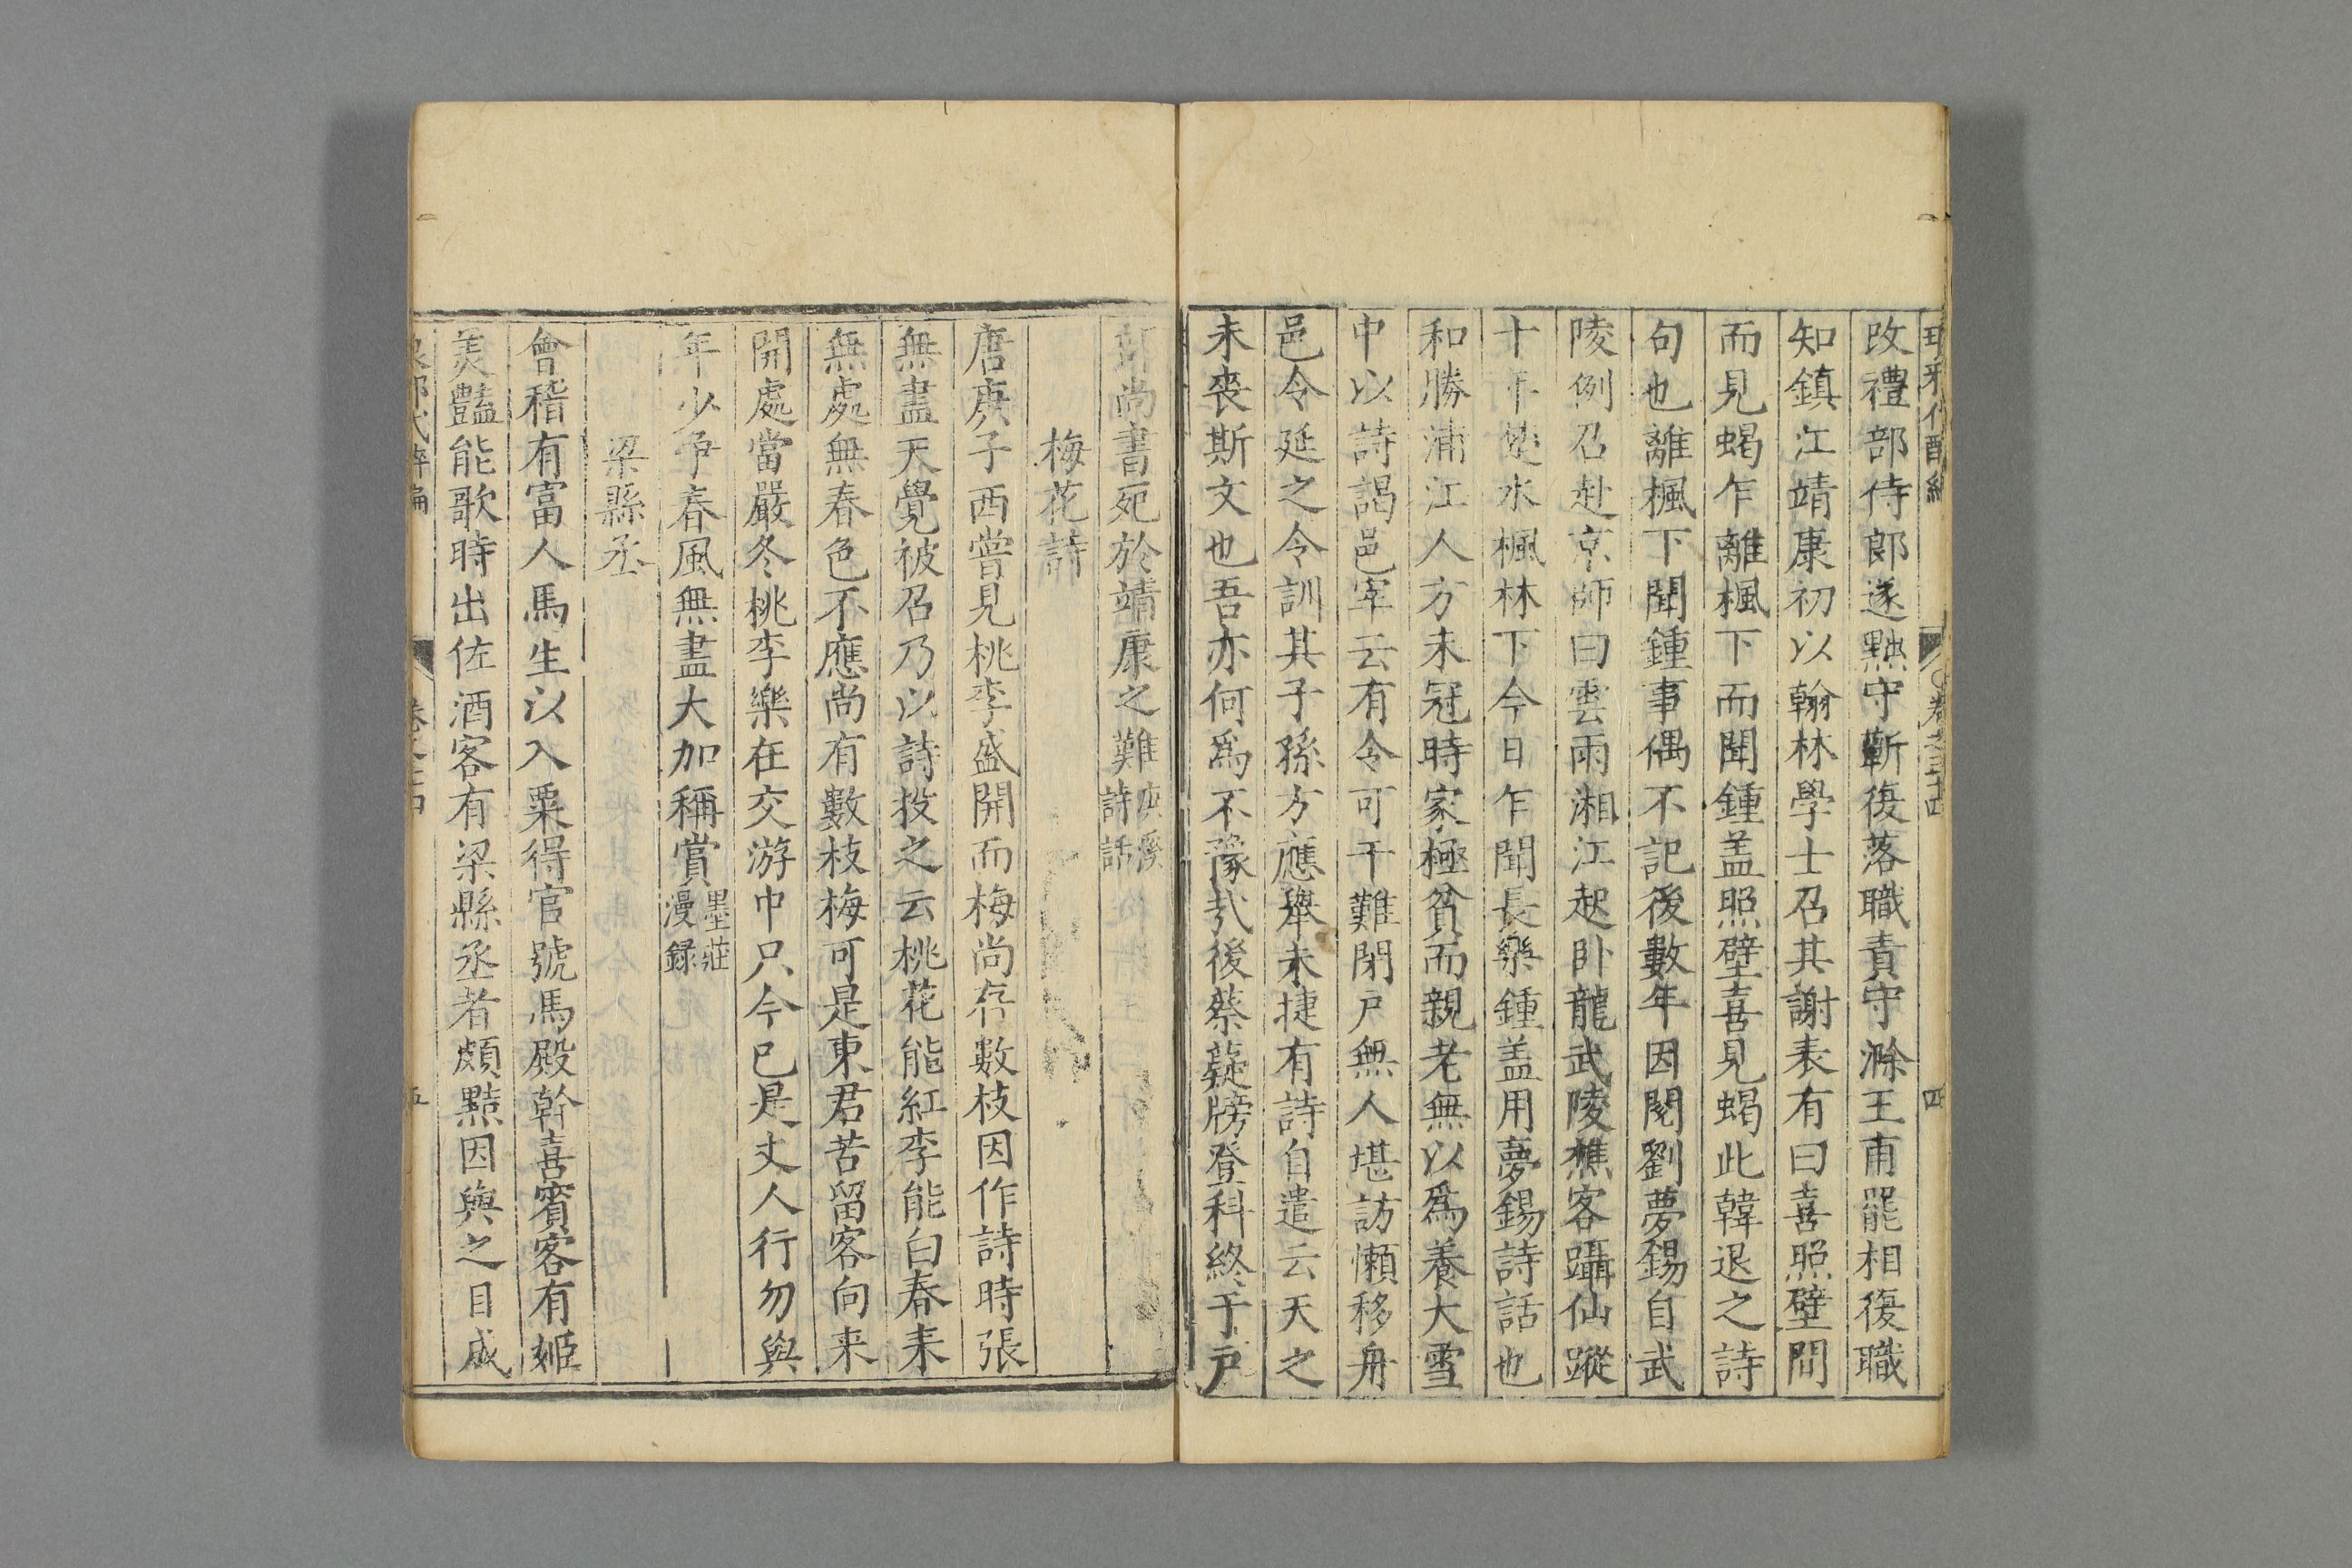 改禮部侍郎遂黜守蘄復落職責守滁王甫罷相復職
知鎮江靖康初以翰林學士召其謝表有曰喜照壁間
而見蝎乍離楓下而聞鍾盖照壁喜見蝎此韓退之詩
句也離楓下聞鍾事偶不記後數年因閱劉夢錫自武
陵例召赴京師曰雲雨湘江起卧龍武陵樵客躡仙蹤
十年楚水楓林下今日乍聞長樂鍾盖用夢錫詩話也
和勝浦江人方未冠時家極貧而親老無以爲養大雪
中以詩謁邑宰云有令可干難閉户無人堪訪懶移舟
邑令延之令訓其子孫方應舉未捷有詩自遣云天之
未喪斯文也吾亦何爲不豫㢤後蔡薿牓登科終于户
部尚書死於靖康之難庚溪詩話
梅花詩
唐庚子西嘗見桃李盛開而梅尚存數枝因作詩時張
無盡天覺被召乃以詩投之云桃花能紅李能白春来
無處無春色不應尚有數枝梅可是東君苦留客向来
開處當嚴冬桃李樂在交游中只今已是丈人行勿與
年少争春風無盡大加稱賞墨莊漫録
梁縣丞
會稽有富人馬生以入粟得官號馬殿幹喜賓客有姬
美豔能歌時出佐酒客有梁縣丞者頗黠因與之目成
卷之三十四
四
五